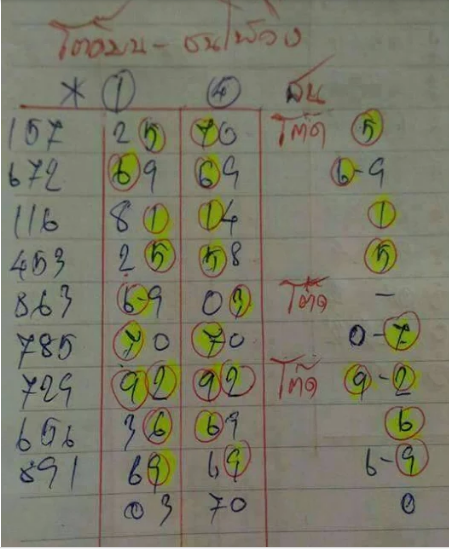 * ① ④ ชน
157 25 70 โต๊ด 5
672 69 69 6-9
116 81 14 1
453 25 58 5
863 6-9 03 โต๊ด -
785 70 70 0-7
729 92 92 โต๊ด 9-2
656 36 69 6
891 69 69 6-9
03 70 0